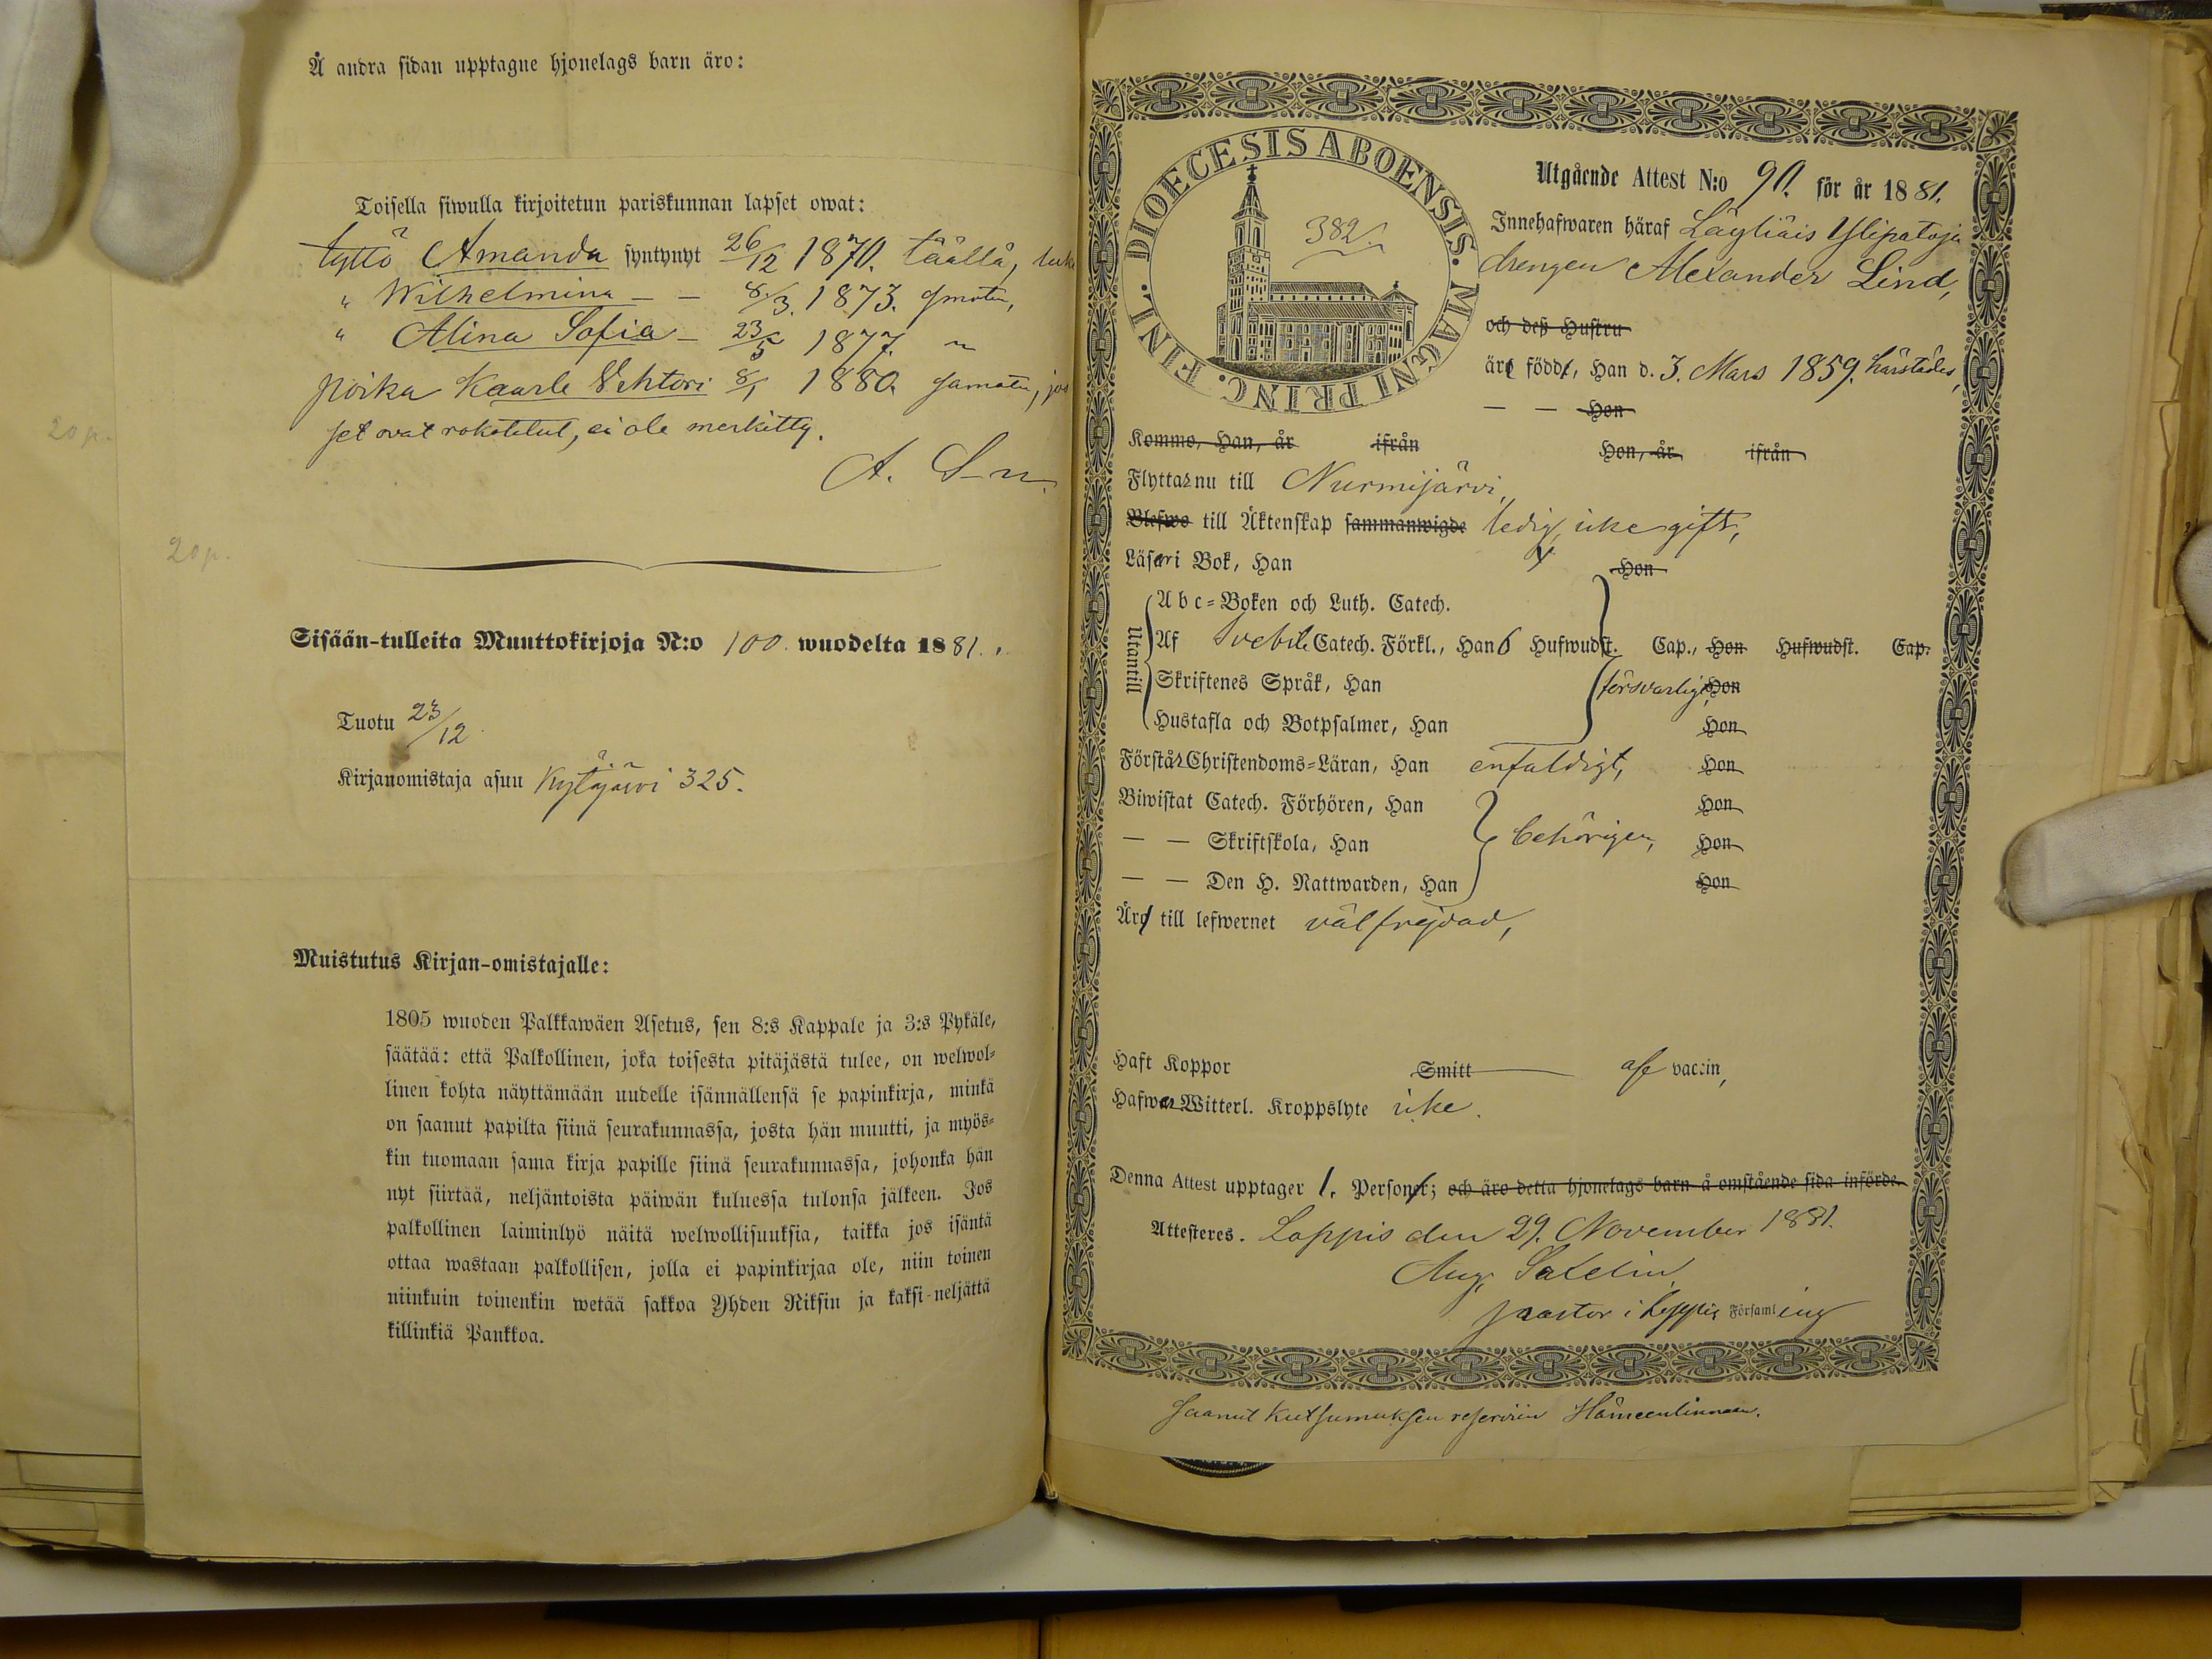 Å andra sidan upptagne hjonelags barn äro:
Toisella siwulla kirjoitetun pariskunnan lapset owat:
tyttö Amanda syntynyt 26/12 1870. täällä,
" Wilhelmina — — 8/3. 1873. samoten,
" Alina Sofia — 23/5 1877. "
poika Kaarle Vehtori 8/1 1880. samoten, jos
set ovat rokotetut, ei ole merkitty.
A. L—n.
20 p.
20 p.
Sisään-tulleita Muuttokirjoja N:o 100. wuodelta 1881.
Tuotu 23/12
Kirjanomistaja asuu Kytäjärvi 325.
Muistutus Kirjan-omistajalle:
1805 wuoden Palkkawäen Asetus, sen 8:s Kappale ja 3:s Pykäle,
säätää: että Palkollinen, joka toisesta pitäjästä tulee, on welwol=
linen kohta näyttämään uudelle isännällensä se papinkirja, minkä
on saanut papilta siinä seurakunnassa, josta hän muutti, ja myös=
kin tuomaan sama kirja papille siinä seurakunnassa, johonka hän
nyt siirtää, neljäntoista päiwän kuluessa tulonsa jälkeen. Jos
palkollinen laiminlyö näitä welwollisuuksia, taikka jos isäntä
ottaa wastaan palkollisen, jolla ei papinkirjaa ole, niin toinen
niinkuin toinenkin wetää sakkoa Yhden Riksin ja kaksi-neljättä
killinkiä Pankkoa.
DIOECESIS ABOENSIS. MAGNI PRINC. FINL.
382.
Utgående Attest N:o 90. för år 1881.
Innehafwaren häraf Läyliäis Ylipatoja
drengen Alexander Lind,
och deß Hustru
äro födde, Han d. 3. Mars 1859. härstädes,
— — Hon
Kommo, Han, år ifrån Hon, år ifrån
Flyttar nu till Nurmijärvi,
Blefwo till Äktenskap sammanwigde ledig, icke gift,
Läser i Bok, Han Hon
Utantill
Abc=Boken och Luth. Catech.
Af Svebil. Catech. Förkl., Han 6 Hufwudst. Cap., Hon Hufwudst. Cap.
Skriftenes Språk, Han försvarligt, Hon
Hustafla och Botpsalmer, Han Hon
Förstår Christendoms=Läran, Han enfaldigt, Hon
Biwistat Catech. Förhören, Han Hon
— — Skriftskola, Han behörigen, Hon
— — Den H. Nattwarden, Han Hon
Äro till lefwernet välfrejdad,
Haft Koppor Smitt af vaccin,
Hafwer Witterl. Kroppslyte icke.
Denna Attest upptager 1. Personer; och äro detta hjonelags barn å omstående sida införde.
Attesteres. Loppis den 29. November 1881.
Aug. Salelin
pastor i Loppis Församling
Saanut Kutsumuksen reserviin Hämeenlinnaan.